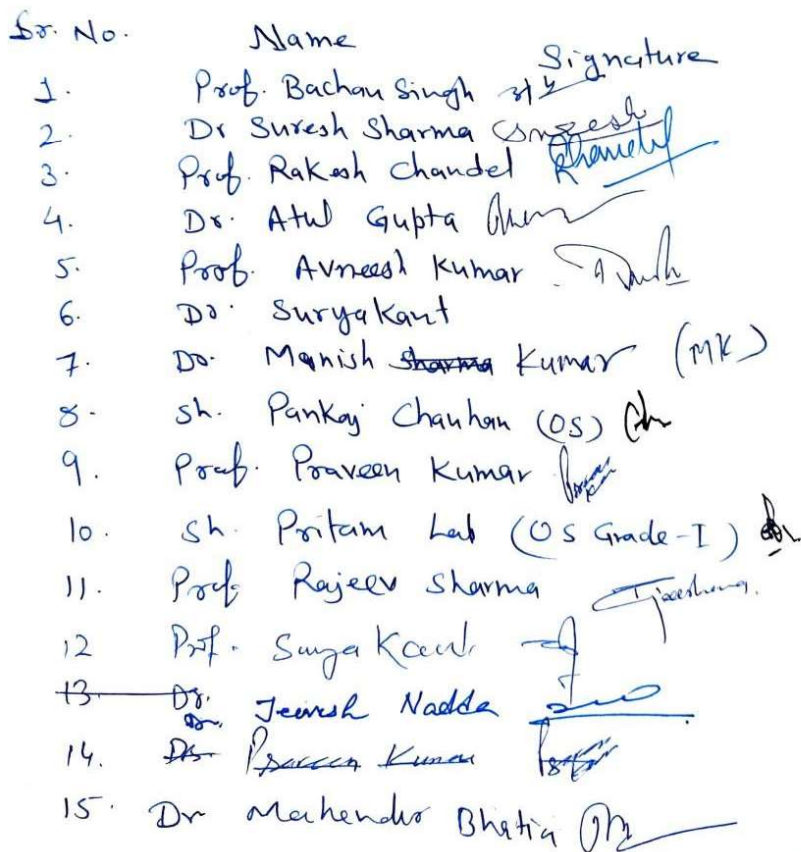 Sr. No. Name Signature
1. Prof. Bachan Singh
2. Dr Suresh Sharma Suresh
3. Prof. Rakesh Chandel RChandel
4. Dr. Atul Gupta
5. Prof. Avneesh Kumar
6. Dr. Suryakant
7. Dr. Manish Sharma Kumar (MK)
8. Sh. Pankaj Chauhan (OS)
9. Prof. Praveen Kumar
10. Sh. Pritam Lal (OS Grade-I)
11. Prof. Rajeev Sharma
12 Prof. Surya Kant
13. Dr.
Dr. Jeevesh Nadda
14. Dr. Praveen Kumar
15. Dr Mahender Bhatia